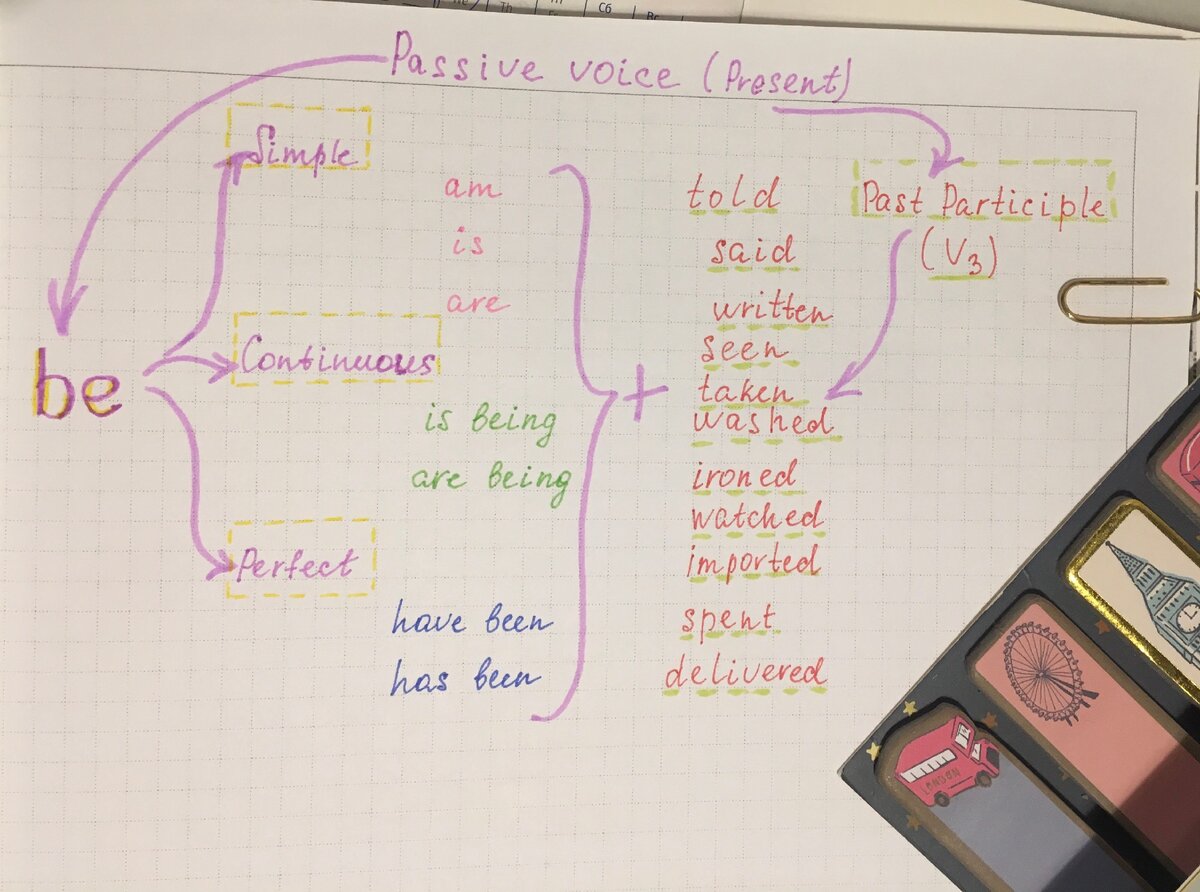 Th
C6
Passive voice (Present)
Simple
am
is
are
be
Continuous
is being
are being
Perfect
have been
has been
+
told
said
written
seen
taken
washed
ironed
watched
imported
spent
delivered
Past Participle
(V3)
LONDON